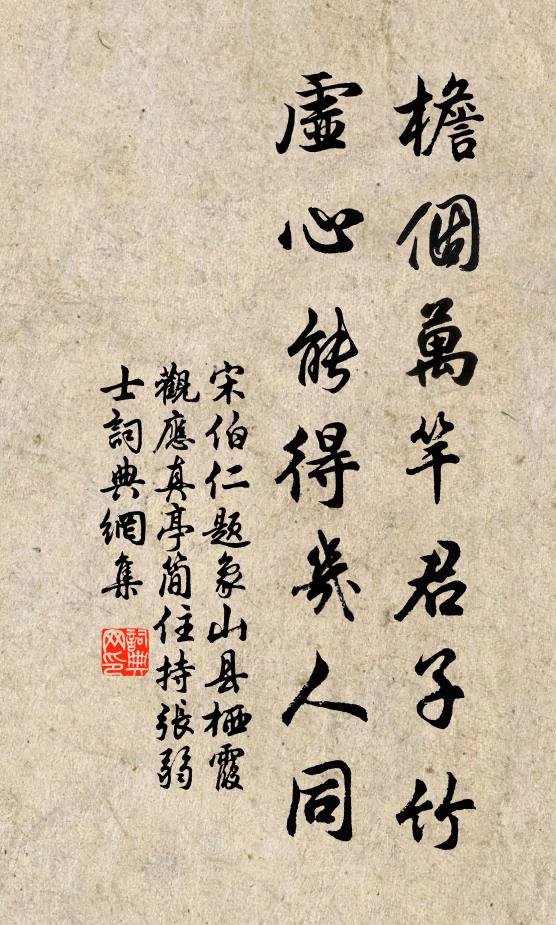 檐個萬竿君子竹
虛心能得幾人同
宋伯仁题象山县栖霞
觀應真亭简住持張弱
士詞典網集
詞典
网印